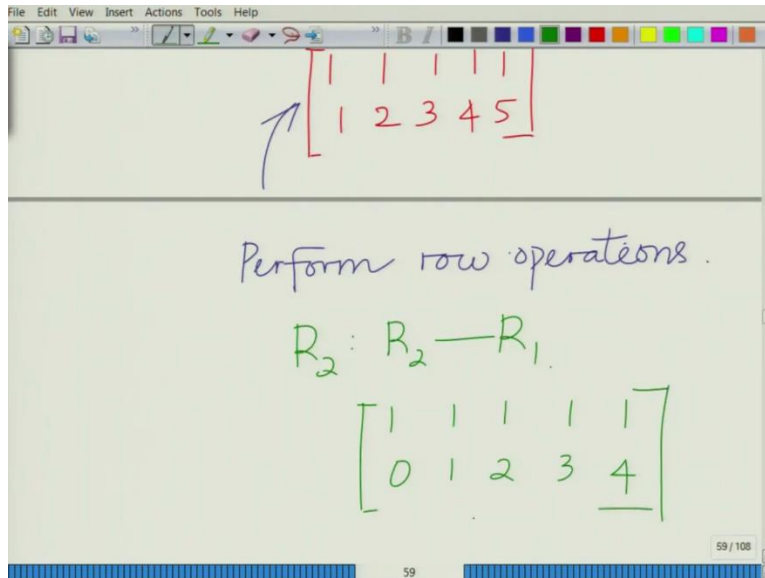 File Edit View Insert Actions Tools Help
B I
1 1 1 1 1
1 2 3 4 5
Perform row operations.
R₂: R₂ — R₁.
1 1 1 1 1
0 1 2 3 4
59 / 108
59